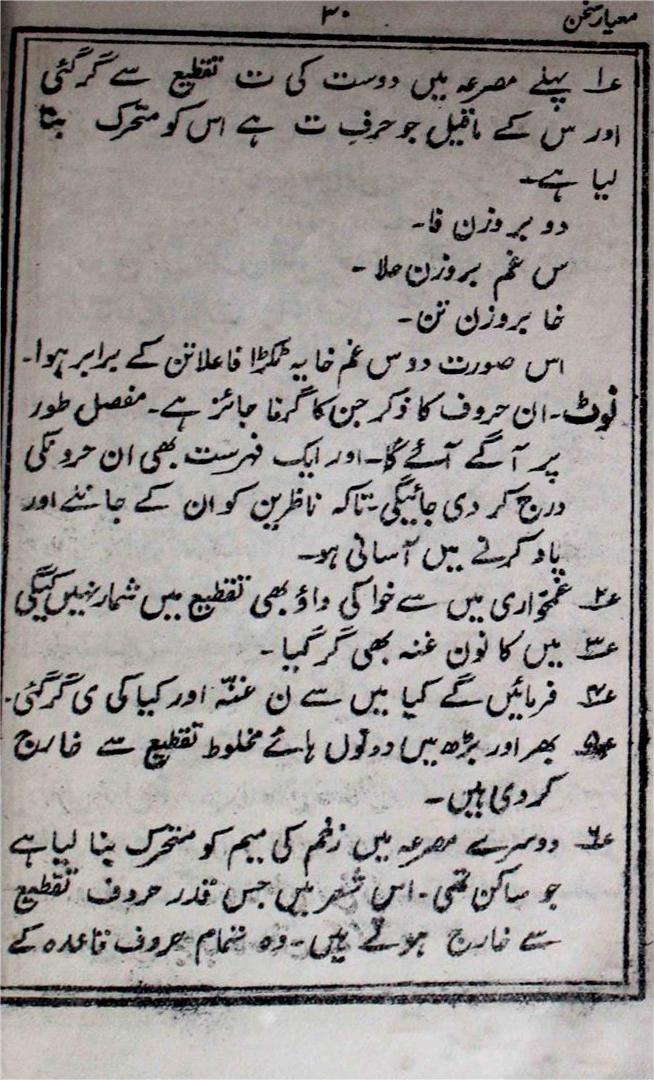 معیار سخن
۳۰
۱؎ پہلے مصرعہ میں دوست کی ت تقطیع سے گر گئی
اور س کے ماقبل جو حرفِ ت ہے اس کو متحرک بنا
لیا ہے۔
دو بروزن فا۔
س غم بروزن علا۔
خا بروزن تن۔
اس صورت دوس غم خا یہ ٹکڑا فاعلاتن کے برابر ہوا۔
نوٹ۔ ان حروف کا ذکر جن کا گرفا جائز ہے۔ مفصل طور
پر آگے آئے گا۔ اور ایک فہرست بھی ان حرونکی
درج کر دی جائیگی۔ تاکہ ناظرین کو ان کے جاننے اور
یاد کرنے میں آسانی ہو۔
۲؎ غمخواری میں سے خوا کی واؤ بھی تقطیع میں شمار نہیں کیگی
۳؎ میں کا نون غنہ بھی گر گیا۔
۴؎ فرمائیں گے کیا میں سے ن غنّہ اور کیا کی ی گر گئی۔
۵؎ بھر اور بڑھ میں دونوں ہائے مخلوط تقطیع سے خارج
کر دی ہیں۔
۶؎ دوسرے مصرعہ میں زخم کی میم کو متحرک بنا لیا ہے
جو ساکن تھی۔ اس شعر میں جس قدر حروف تقطیع
سے خارج ہوئے ہیں۔ وہ تمام حروف قاعدہ کے